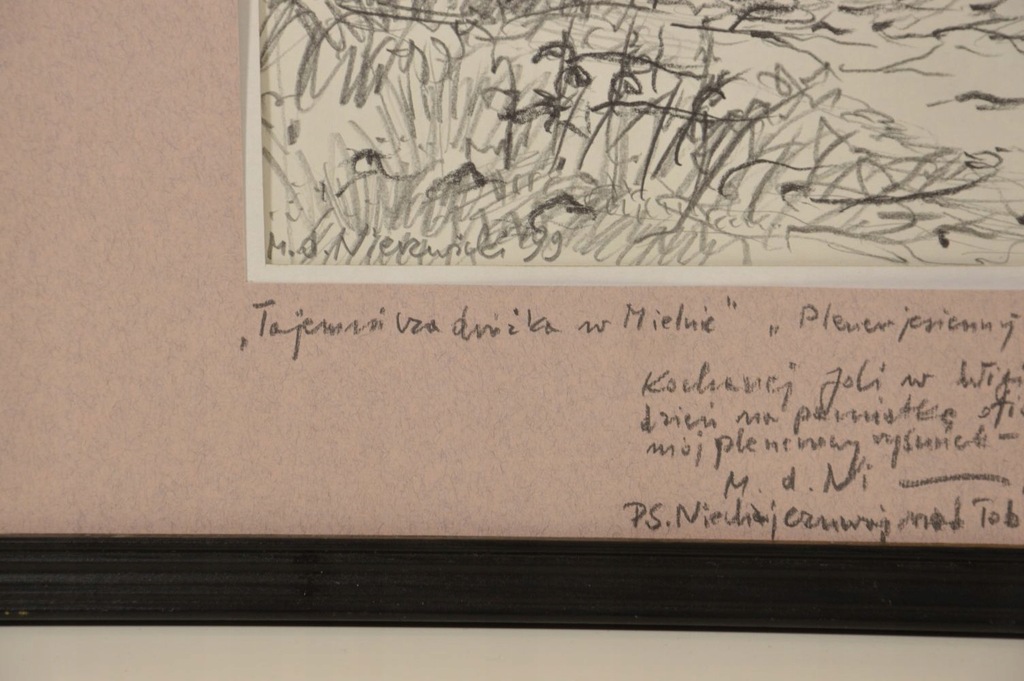 M. d. Nierewicki '99
„Tajemnicza dróżka w Mielnie" „Plener jesienny
Kochanej Joli w
dzień na pamiątkę
mój plenerowy rysunek -
M. d. Ni
P.S. Niechaj czuwaj nad Tob